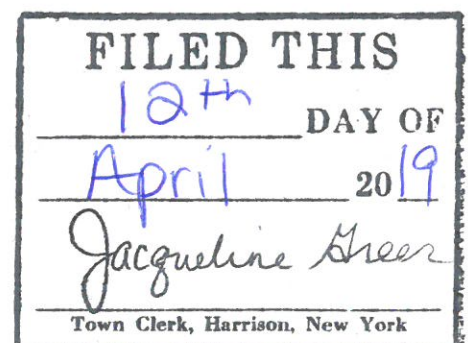 FILED THIS
12th DAY OF
April 2019
Jacqueline Greer
Town Clerk, Harrison, New York